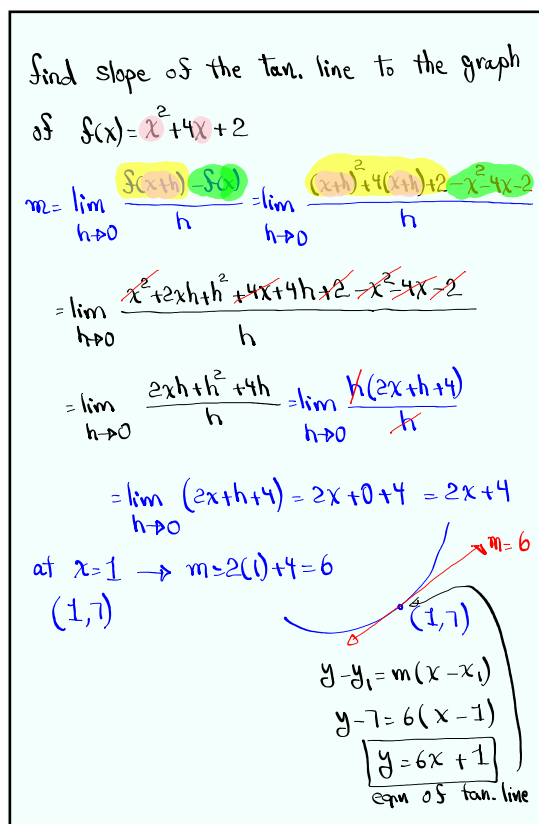 find slope of the tan. line to the graph
of f(x)=x²+4x+2
m= lim h→0 (f(x+h)-f(x))/h = lim h→0 ((x+h)²+4(x+h)+2-x²-4x-2)/h
= lim h→0 (x²+2xh+h²+4x+4h+2-x²-4x-2)/h
= lim h→0 (2xh+h²+4h)/h = lim h→0 (h(2x+h+4))/h
= lim h→0 (2x+h+4) = 2x+0+4 = 2x+4
m=6
at x=1 → m=2(1)+4=6
(1,7)
(1,7)
y-y₁=m(x-x₁)
y-7=6(x-1)
y=6x+1
eqn of tan. line